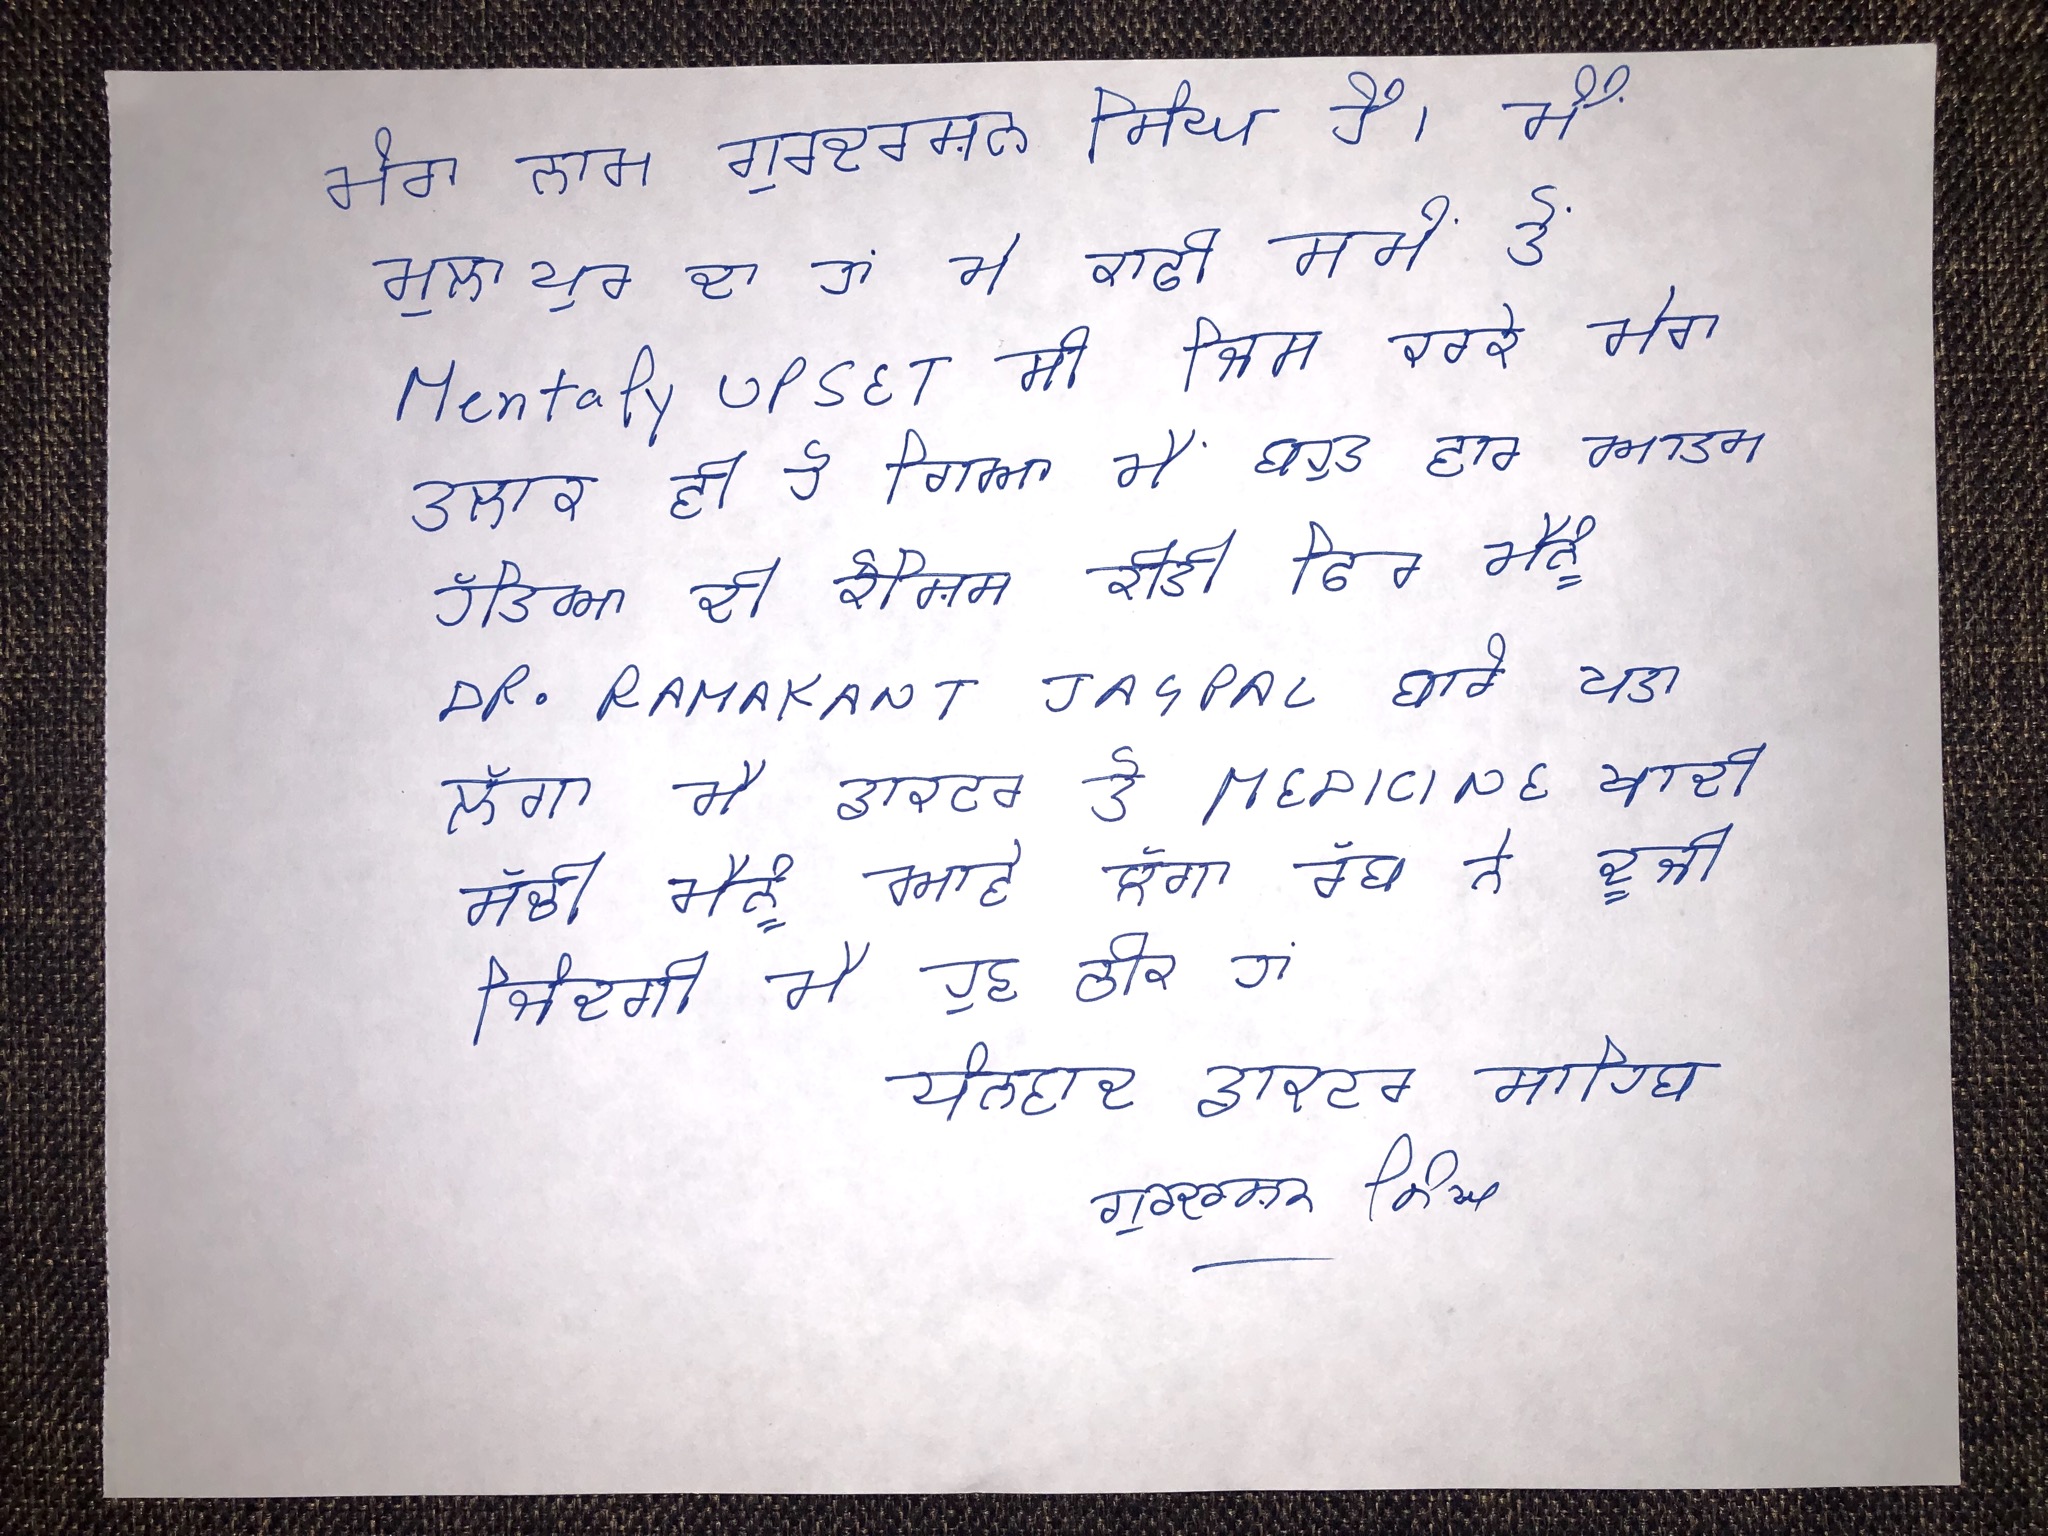 ਮੇਰਾ ਨਾਮ ਗੁਰਦਰਸ਼ਨ ਸਿੰਘ ਹੈ। ਮੈਂ
ਮੁਲਾਪੁਰ ਦਾ ਹਾਂ ਮੇ ਕਾਫੀ ਸਮੇਂ ਤੋਂ
Mentaly UPSET ਸੀ ਜਿਸ ਕਰਕੇ ਮੇਰਾ
ਤਲਾਕ ਵੀ ਹੋ ਗਿਆ ਮੈਂ ਬਹੁਤ ਵਾਰ ਆਤਮ
ਹੱਤਿਆ ਦੀ ਕੋਸ਼ਿਸ਼ ਕੀਤੀ ਫਿਰ ਮੈਨੂੰ
DR. RAMAKANT JAGPAL ਬਾਰੇ ਪਤਾ
ਲੱਗਾ ਮੈ ਡਾਕਟਰ ਤੋ MEDICINE ਖਾਦੀ
ਸੱਚੀ ਮੈਨੂੰ ਲੱਗਾ ਰੱਬ ਨੇ ਦੂਜੀ
ਜਿੰਦਗੀ ਮੈ ਹੁਣ ਠੀਕ ਹਾਂ
ਧੰਨਵਾਦ ਡਾਕਟਰ ਸਾਹਿਬ
ਗੁਰਦਰਸ਼ਨ ਸਿੰਘ